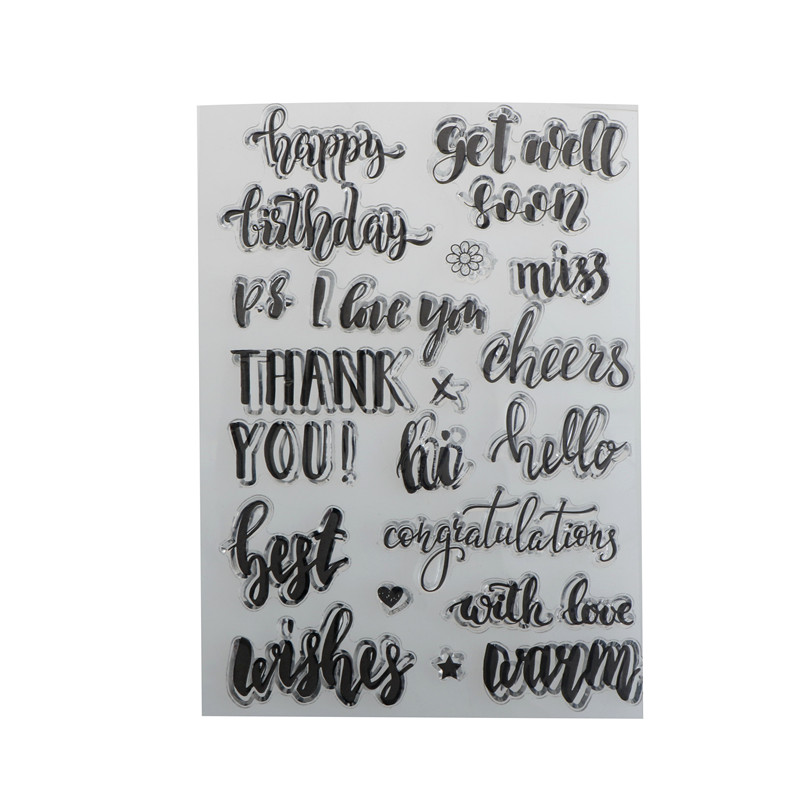 happy
birthday
get well
soon
miss
p.s. I love you
cheers
THANK
YOU!
x
hi
hello
best
congratulations
with love
wishes
warm